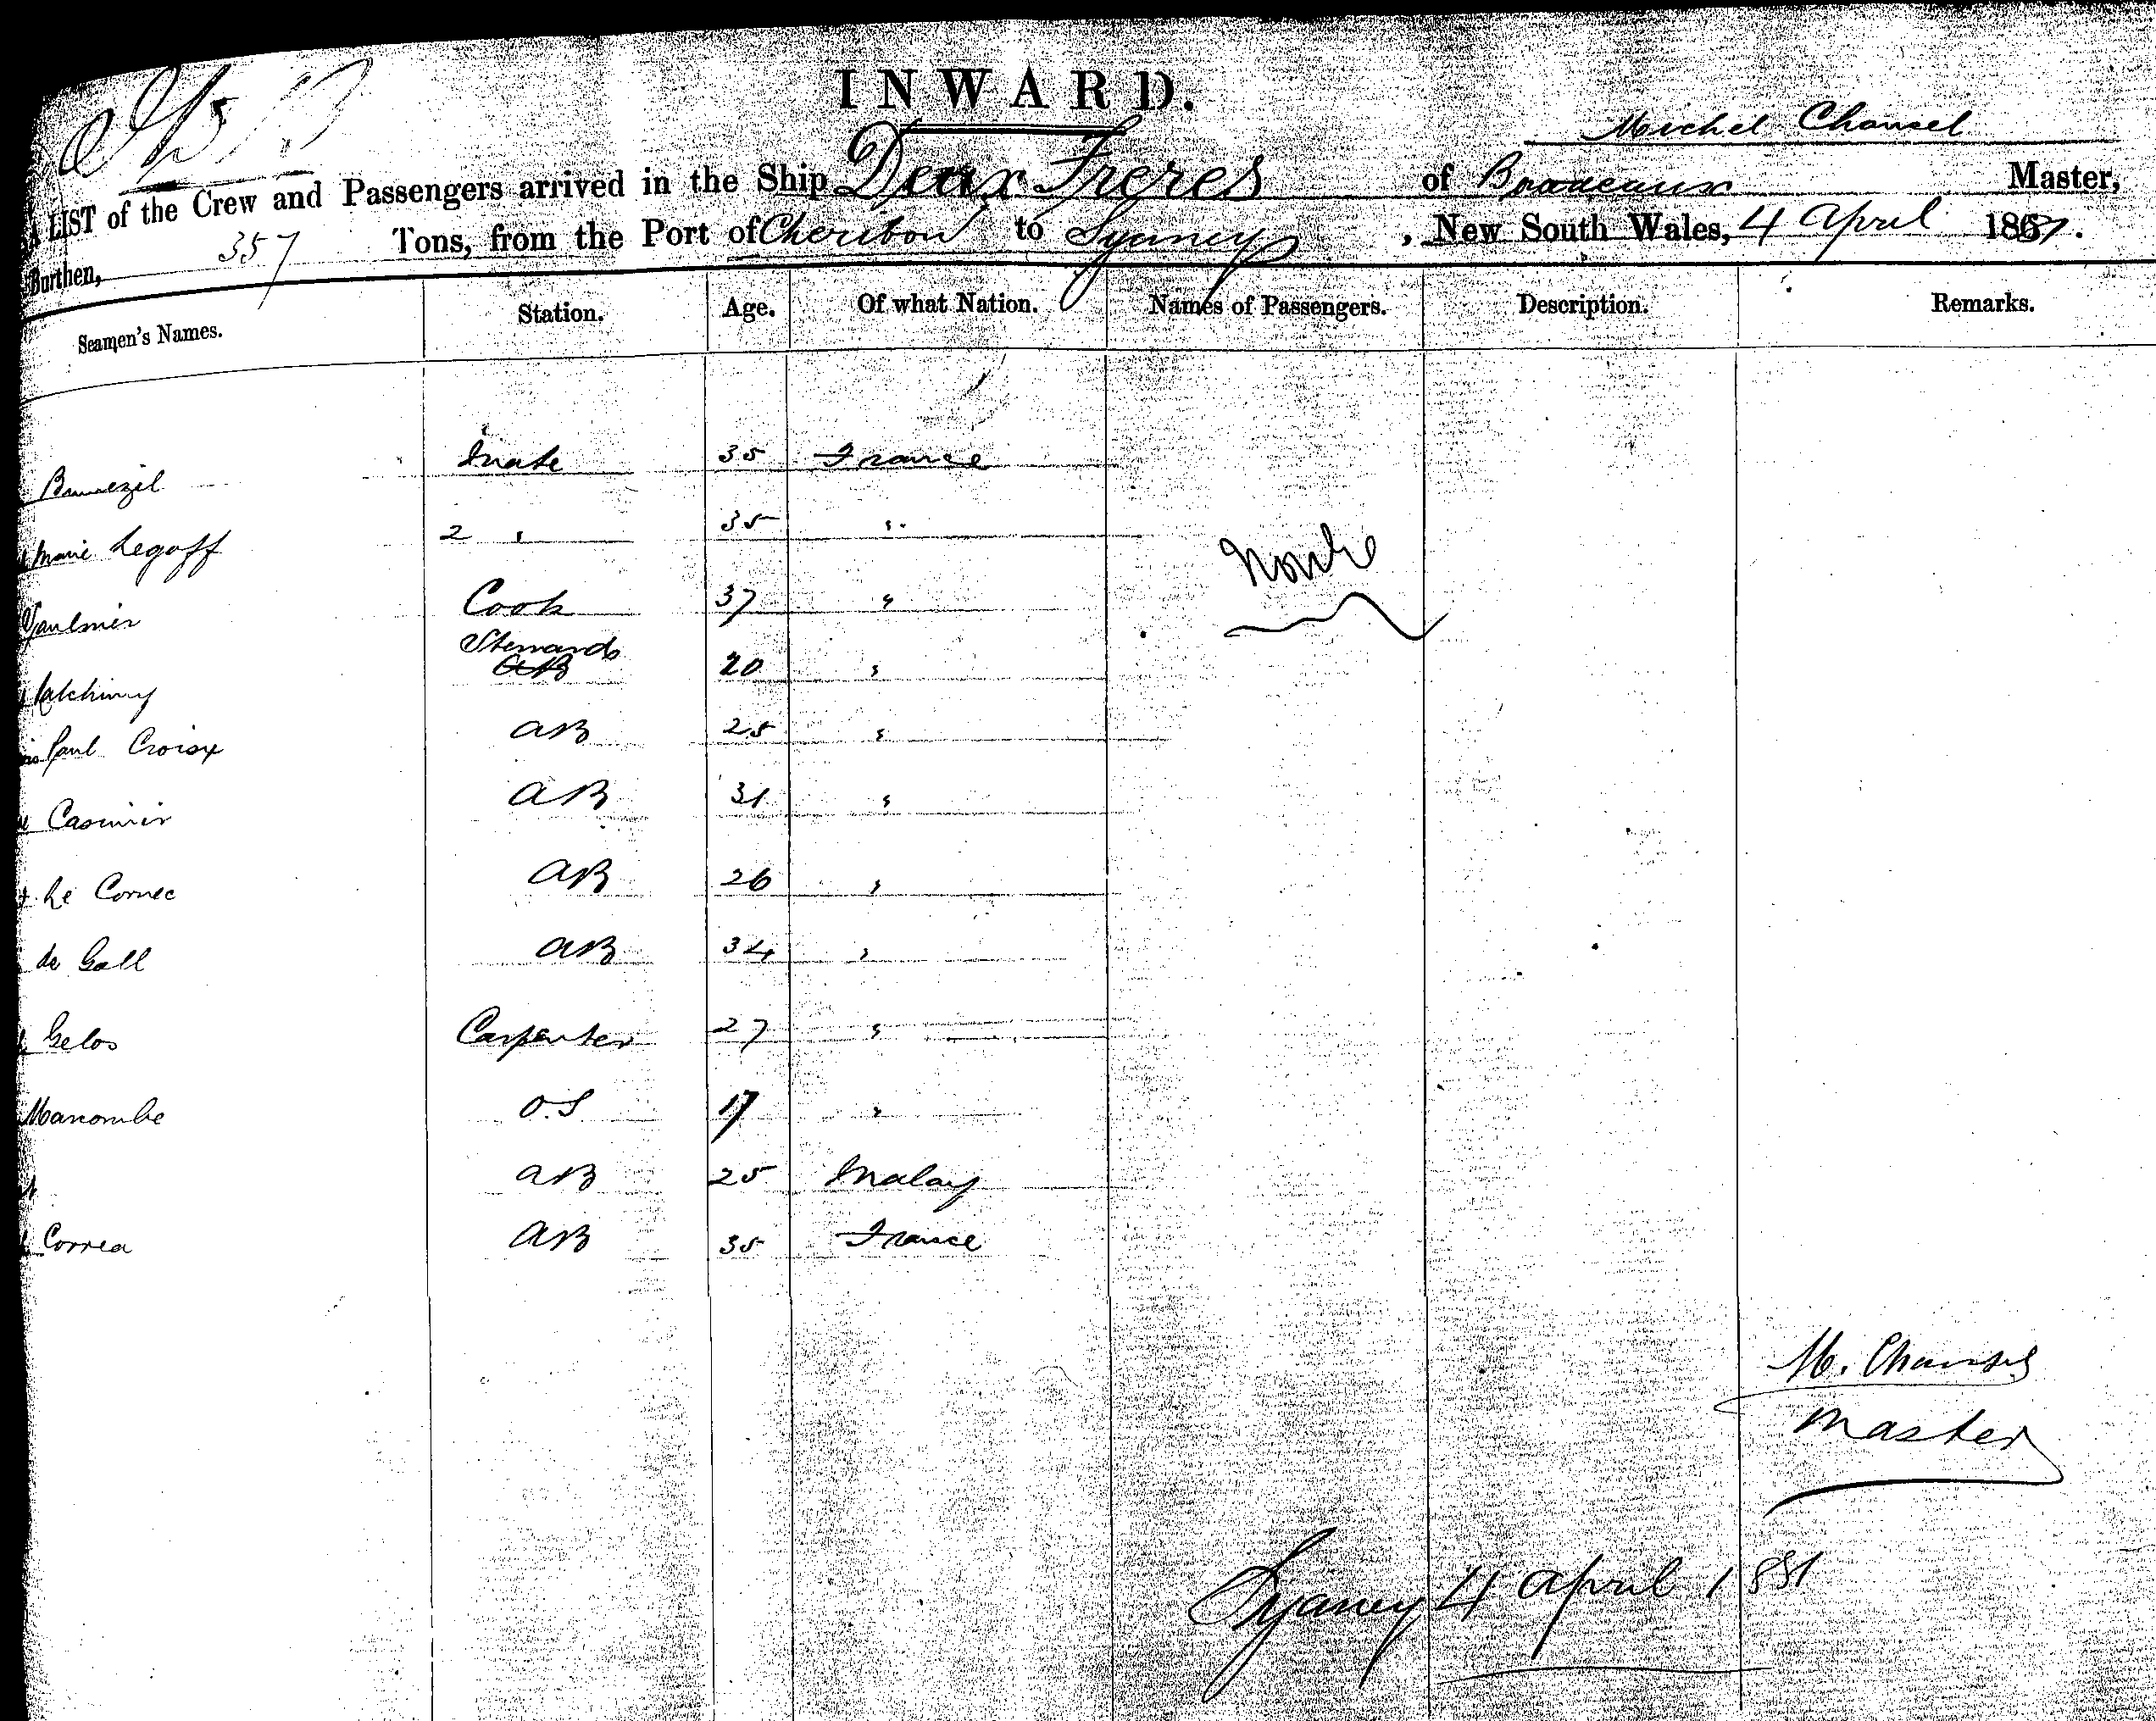 INWARD.
Michel Chansel
A LIST of the Crew and Passengers arrived in the Ship Deux Freres of Bordeaux Master,
Burthen, 357 Tons, from the Port of Cheribon to Sydney, New South Wales, 4 April 186
Seamen's Names. Station. Age. Of what Nation. Names of Passengers. Description. Remarks.
Mate 35 France
Marie Legoff 2 " 35 "
None
Gaulmier Cook 37 "
Steward
AB 20 "
Paul Croisx AB 25 "
Casimir AB 31 "
Le Cornec AB 26 "
de Gall AB 34 "
Gelos Carpenter 27 "
Marcombe O.S 17 "
AB 25 Malay
Correa AB 35 France
M. Chansel
Master
Sydney 4 April 1881